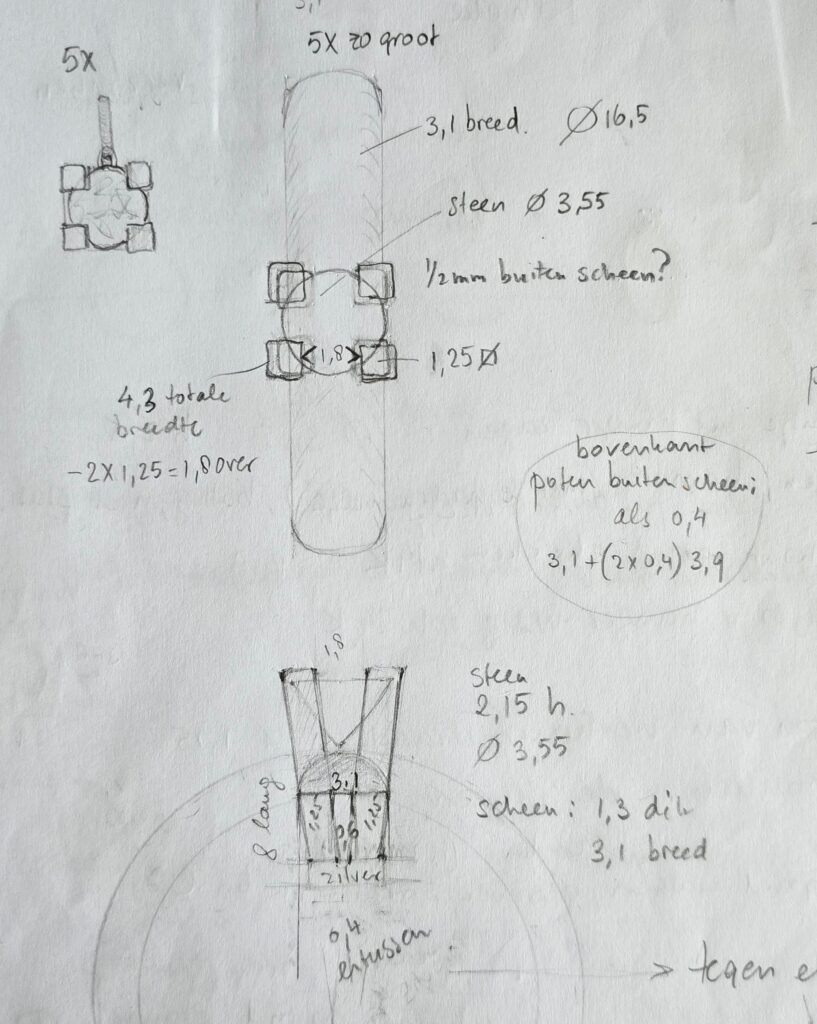 3,1
5X zo groot
5X
3,1 breed. Ø16,5
steen Ø 3,55
1/2 mm buiten scheen?
1,8
1,25
4,3 totale
breedte
-2X1,25=1,8 over
bovenkant
poten buiten scheen;
als 0,4
3,1+(2x0,4) 3,9
1,8
steen
2,15 h.
Ø 3,55
3.1
8 lang
1,25
0,6
1,25
scheen: 1,3 dik
3,1 breed
zilver
0,4
ertussen
> tegen e